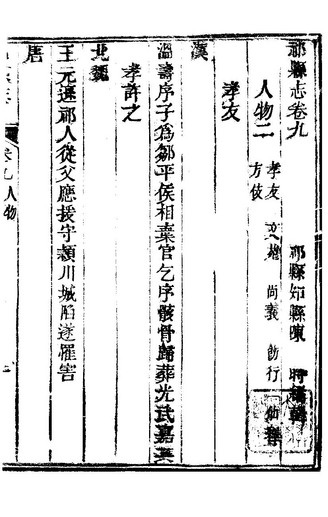 祁縣志卷九
祁縣知縣陳 時編輯
人物二
孝友 文雄 尚義 飭行
方伎 仙釋
孝友
漢
溫壽序子為鄒平侯相棄官乞序骸骨歸葬光武嘉其
孝許之
北魏
王元遜祁人從父應援守潁川城陷遂罹害
唐
卷九人物